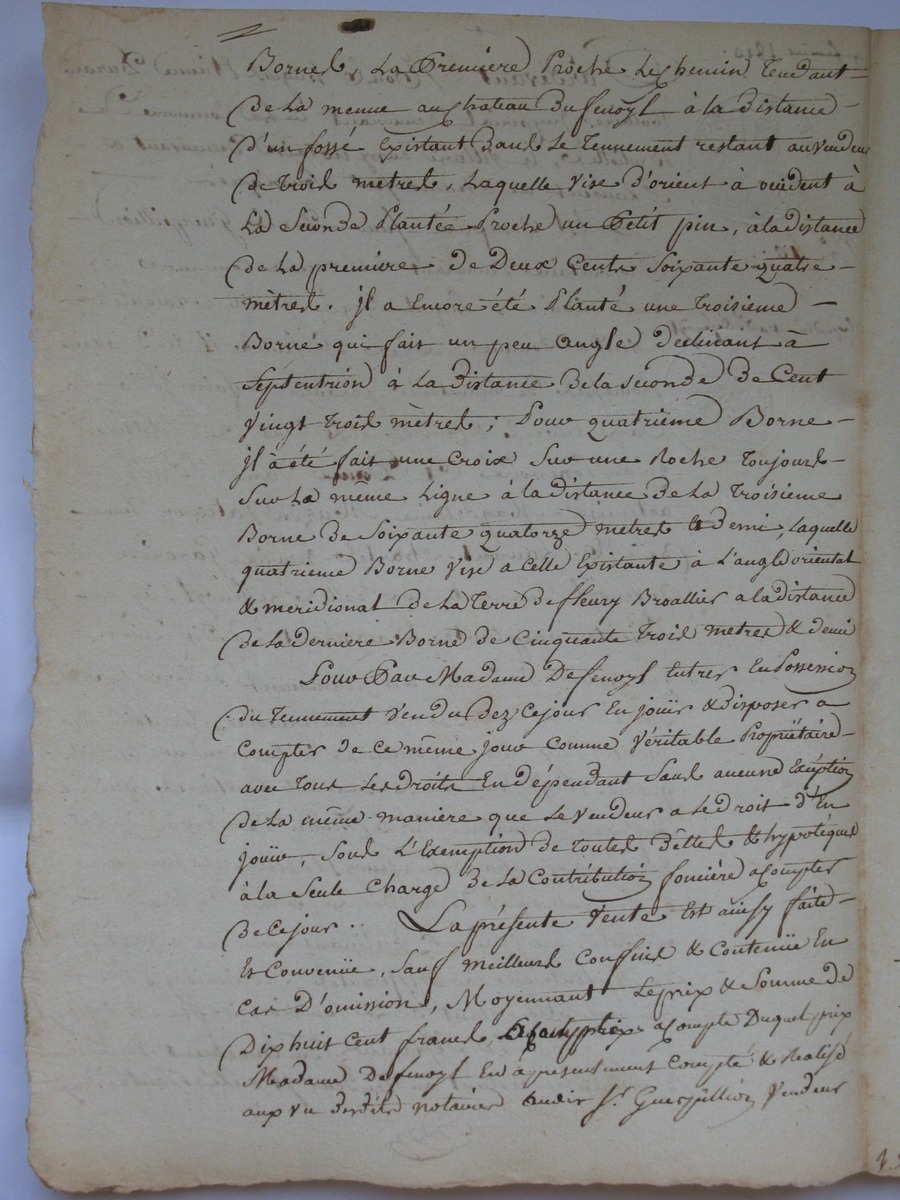 Bornes La Premiere Proche Le Chemin Tendant
De La menue au Chateau Du fenoÿl à la Distance
D'un fossé Existant Dans Le Tennement restant au vendeur
De Trois mètres, Laquelle Vise D'orient à occident à
La Seconde Plantée Proche un Petit pin, à la distance
De La premiere De Deux Cents Soixante quatre
mètres. jl a Encore été Planté une Troisieme
Borne qui fait un peu angle Declinant à
Septentrion à La Distance De la seconde De Cent
vingt trois mètres; Pour quatriëme Borne
jl à été fait une Croix Sur une Roche Toujours
Sur La même Ligne à la distance De La Troisieme
Borne De Soixante quatorze mètres & Demi, Laquelle
quatrieme Borne Vise a Celle Existante à L'angle oriental
& meridional De La Terre De fleury Broallier a la distance
De la Derniere Borne De Cinquante Trois metres & demi
Pour Par Madame De fenoyl Entrer En Possession
Du Tennement Vendu Dez Ce jour En jouïr & disposer a
Compter De Ce même jour Comme Véritable Propriëtaire
avec Tous Les Droits En Dépendant Sans aucune Exéption
De La même maniere que Le Vendeur a Le Droit D'En
jouïr, Sous L'Exemption De toutes Dêttes & hypotéques
à la Seule Charge De La Contribution foncière a Compter
De Ce jour .. La présente Vente Est ainsy faite
Et Convenüe, Sauf meilleurs Confins & Contenüe En
Cas D'omission, Moyennant Le prix & Somme de
Dix huit Cent francs, acompte Duquel prix
Madame De fenoyl En a présentement Compté & Réalisé
aux vu Desdits notaires audit Sr. Guerpillion Vendeur